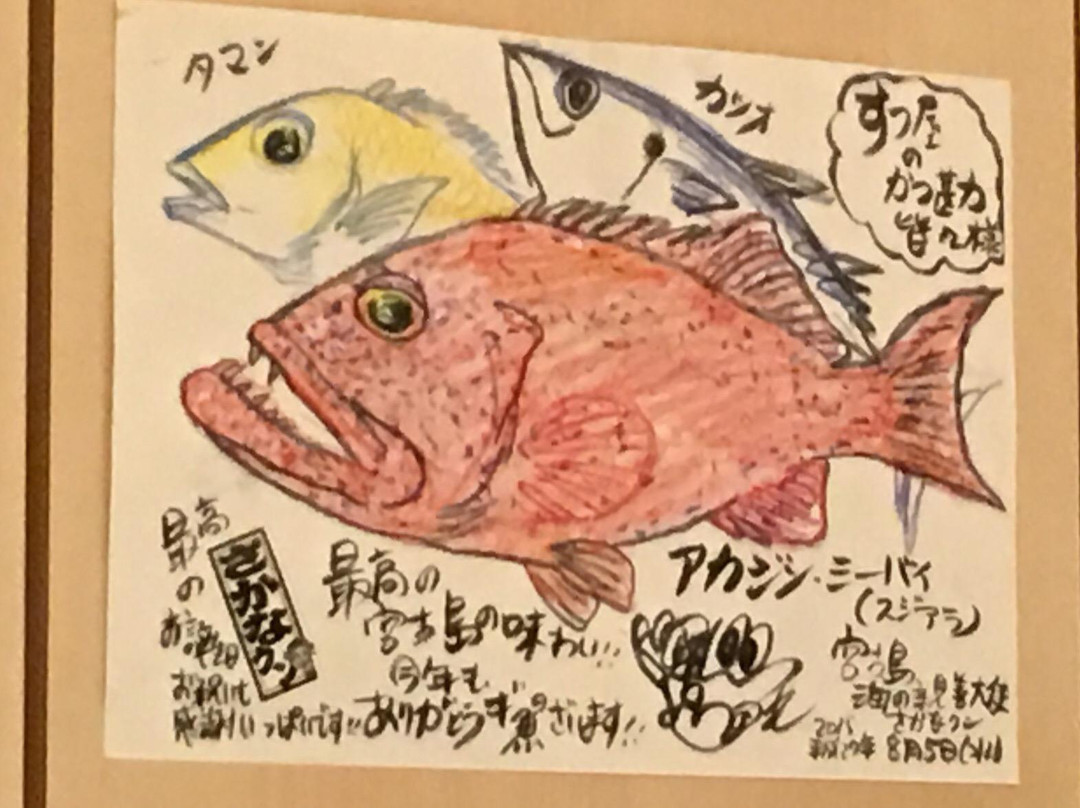 タマン
カツオ
すつ屋
の
かつ勘
皆々様
アカジン・ミーバイ
(スジアラ)
最高
の
お誕生日
お祝いも
感謝いっぱいです!!
さかなクン
最高の
宮古島の味わい!!
今年も
ありがとうギョざいます!!
宮古島
海の親善大使
さかなクン
2015
平成27年 8月5日(水)